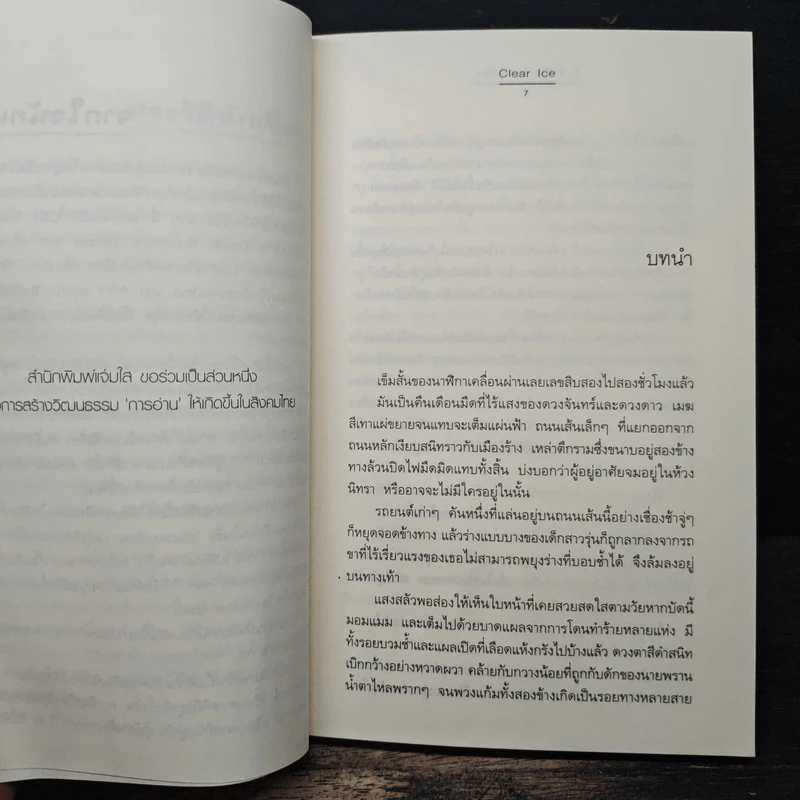 สำนักพิมพ์แจ่มใส ขอร่วมเป็นส่วนหนึ่ง
การสร้างวัฒนธรรม 'การอ่าน' ให้เกิดขึ้นในสังคมไทย
Clear Ice
7
บทนำ
เข็มสั้นของนาฬิกาเคลื่อนผ่านเลยเลขสิบสองไปสองชั่วโมงแล้ว
มันเป็นคืนเดือนมืดที่ไร้แสงของดวงจันทร์และดวงดาว เมฆ
สีเทาแผ่ขยายจนแทบจะเต็มแผ่นฟ้า ถนนเส้นเล็กๆ ที่แยกออกจาก
ถนนหลักเงียบสนิทราวกับเมืองร้าง เหล่าตึกรามซึ่งขนาบอยู่สองข้าง
ทางล้วนปิดไฟมืดมิดแทบทั้งสิ้น บ่งบอกว่าผู้อยู่อาศัยจมอยู่ในห้วง
นิทรา หรืออาจจะไม่มีใครอยู่ในนั้น
รถยนต์เก่าๆ คันหนึ่งที่แล่นอยู่บนถนนเส้นนี้อย่างเชื่องช้าจู่ๆ
ก็หยุดจอดข้างทาง แล้วร่างแบบบางของเด็กสาวรุ่นก็ถูกลากลงจากรถ
ขาที่ไร้เรี่ยวแรงของเธอไม่สามารถพยุงร่างที่บอบช้ำได้ จึงล้มลงอยู่
บนทางเท้า
แสงสลัวพอส่องให้เห็นใบหน้าที่เคยสวยสดใสตามวัยหากบัดนี้
มอมแมม และเต็มไปด้วยบาดแผลจากการโดนทำร้ายหลายแห่ง มี
ทั้งรอยบวมช้ำและแผลเปิดที่เลือดแห้งกรังไปบ้างแล้ว ดวงตาสีดำสนิท
เบิกกว้างอย่างหวาดผวา คล้ายกับกวางน้อยที่ถูกกับดักของนายพราน
น้ำตาไหลพรากๆ จนพวงแก้มทั้งสองข้างเกิดเป็นรอยทางหลายสาย